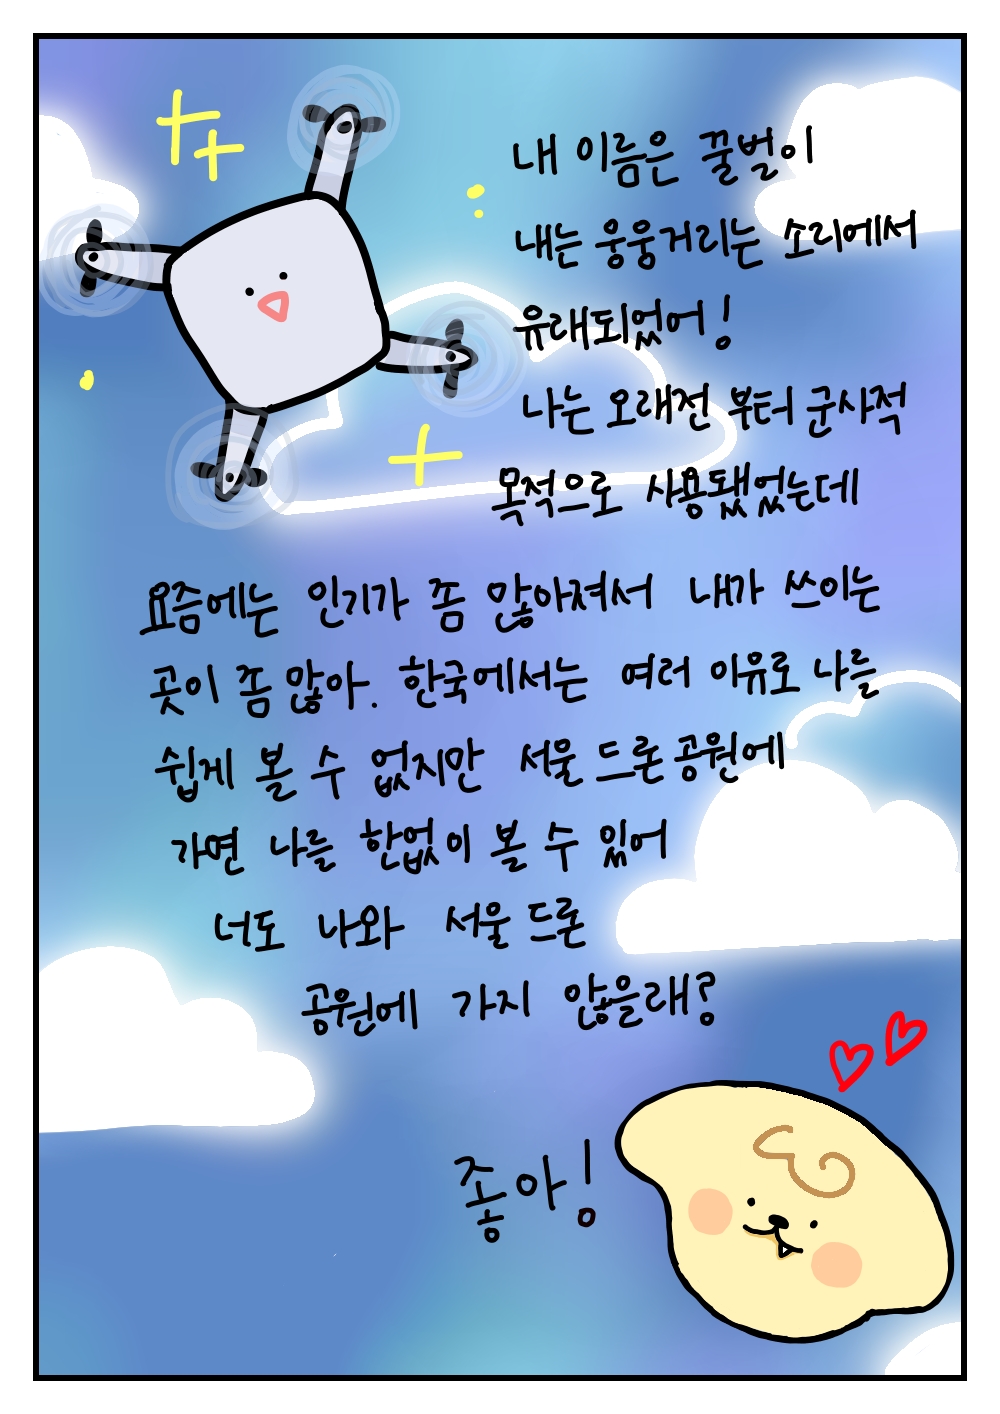 내 이름은 꿀벌이
내는 웅웅거리는 소리에서
유래되었어!
나는 오래전 부터 군사적
목적으로 사용됐었는데
요즘에는 인기가 좀 많아져서 내가 쓰이는
곳이 좀 많아. 한국에서는 여러 이유로 나를
쉽게 볼 수 없지만 서울 드론 공원에
가면 나를 한없이 볼 수 있어
너도 나와 서울 드론
공원에 가지 않을래?
좋아!